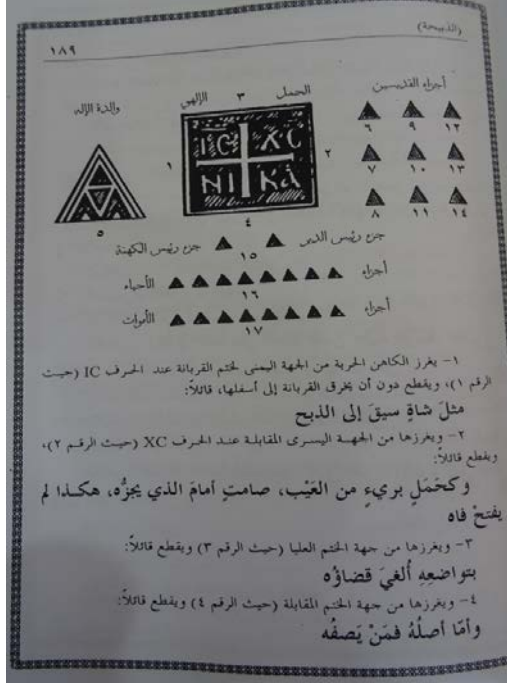 (الذبيحة)
١٨٩
أجزاء القديسين
الحمل ٣ الإلهي
والدة الإله
١٢ ٩ ٦
١٣ ١٠ ٧
١٤ ١١ ٨
IC XC
NI KA
١
٢
٤
٥
جزء رئيس الدير
جزء رئيس الكهنة
١٥
أجزاء الأحياء
١٦
أجزاء الأموات
١٧
١- يغرز الكاهن الحربة من الجهة اليمنى لختم القربانة عند الحرف IC (حيث
الرقم ١)، ويقطع دون أن يخرق القربانة إلى أسفلها، قائلاً:
مثلَ شاةٍ سيقَ إلى الذبح
٢- ويغرزها من الجهة اليسرى المقابلة عند الحرف XC (حيث الرقم ٢)،
ويقطع قائلاً:
وكحَمَلٍ بريءٍ من العَيْب، صامتٍ أمامَ الذي يجزُّه، هكذا لم
يفتحْ فاه
٣- ويغرزها من جهة الختم العليا (حيث الرقم ٣) ويقطع قائلاً:
بتواضعِهِ أُلغيَ قضاؤُه
٤- ويغرزها من جهة الختم المقابلة (حيث الرقم ٤) ويقطع قائلاً:
وأمّا أصلُهُ فمَنْ يَصفُه